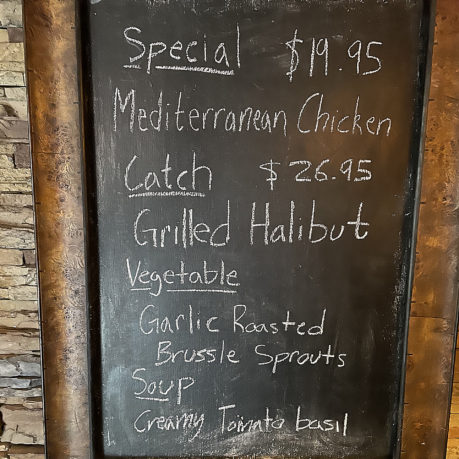 Special $19.95
Mediterranean Chicken
Catch $26.95
Grilled Halibut
Vegetable
Garlic Roasted
Brussle Sprouts
Soup
Creamy Tomato basil